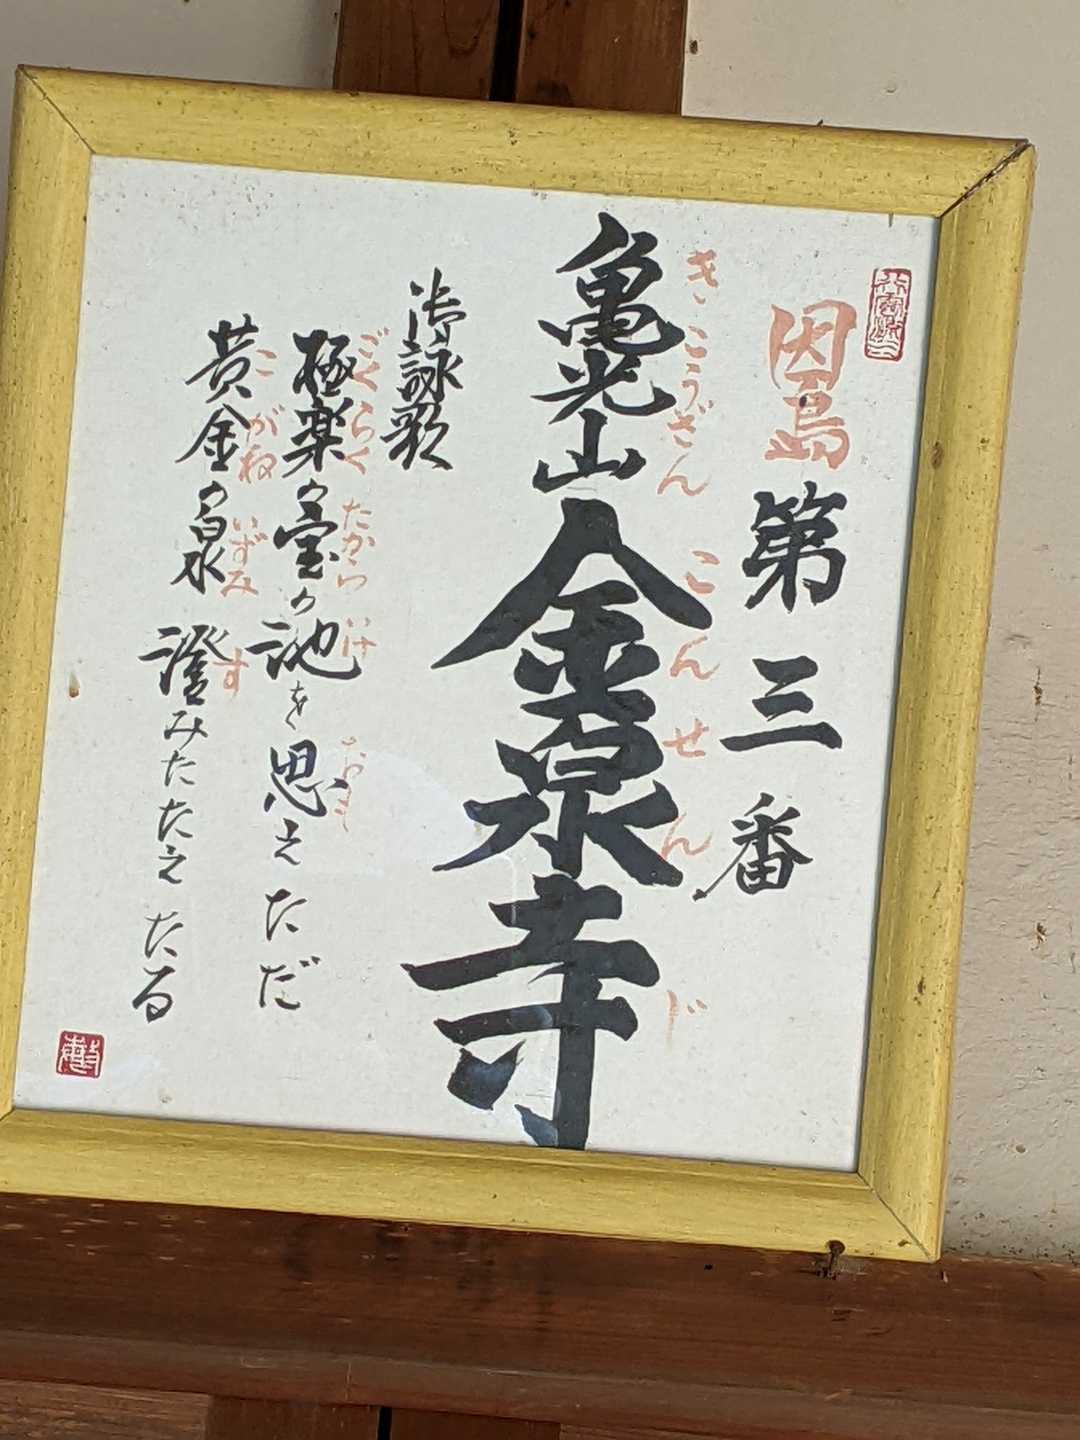 因島第三番
亀光山金泉寺
きこうざんこんせんじ
御詠歌
極楽の宝の池を思えただ
ごくらくたからいけおも
黄金の泉澄みたたえたる
こがねいずみす